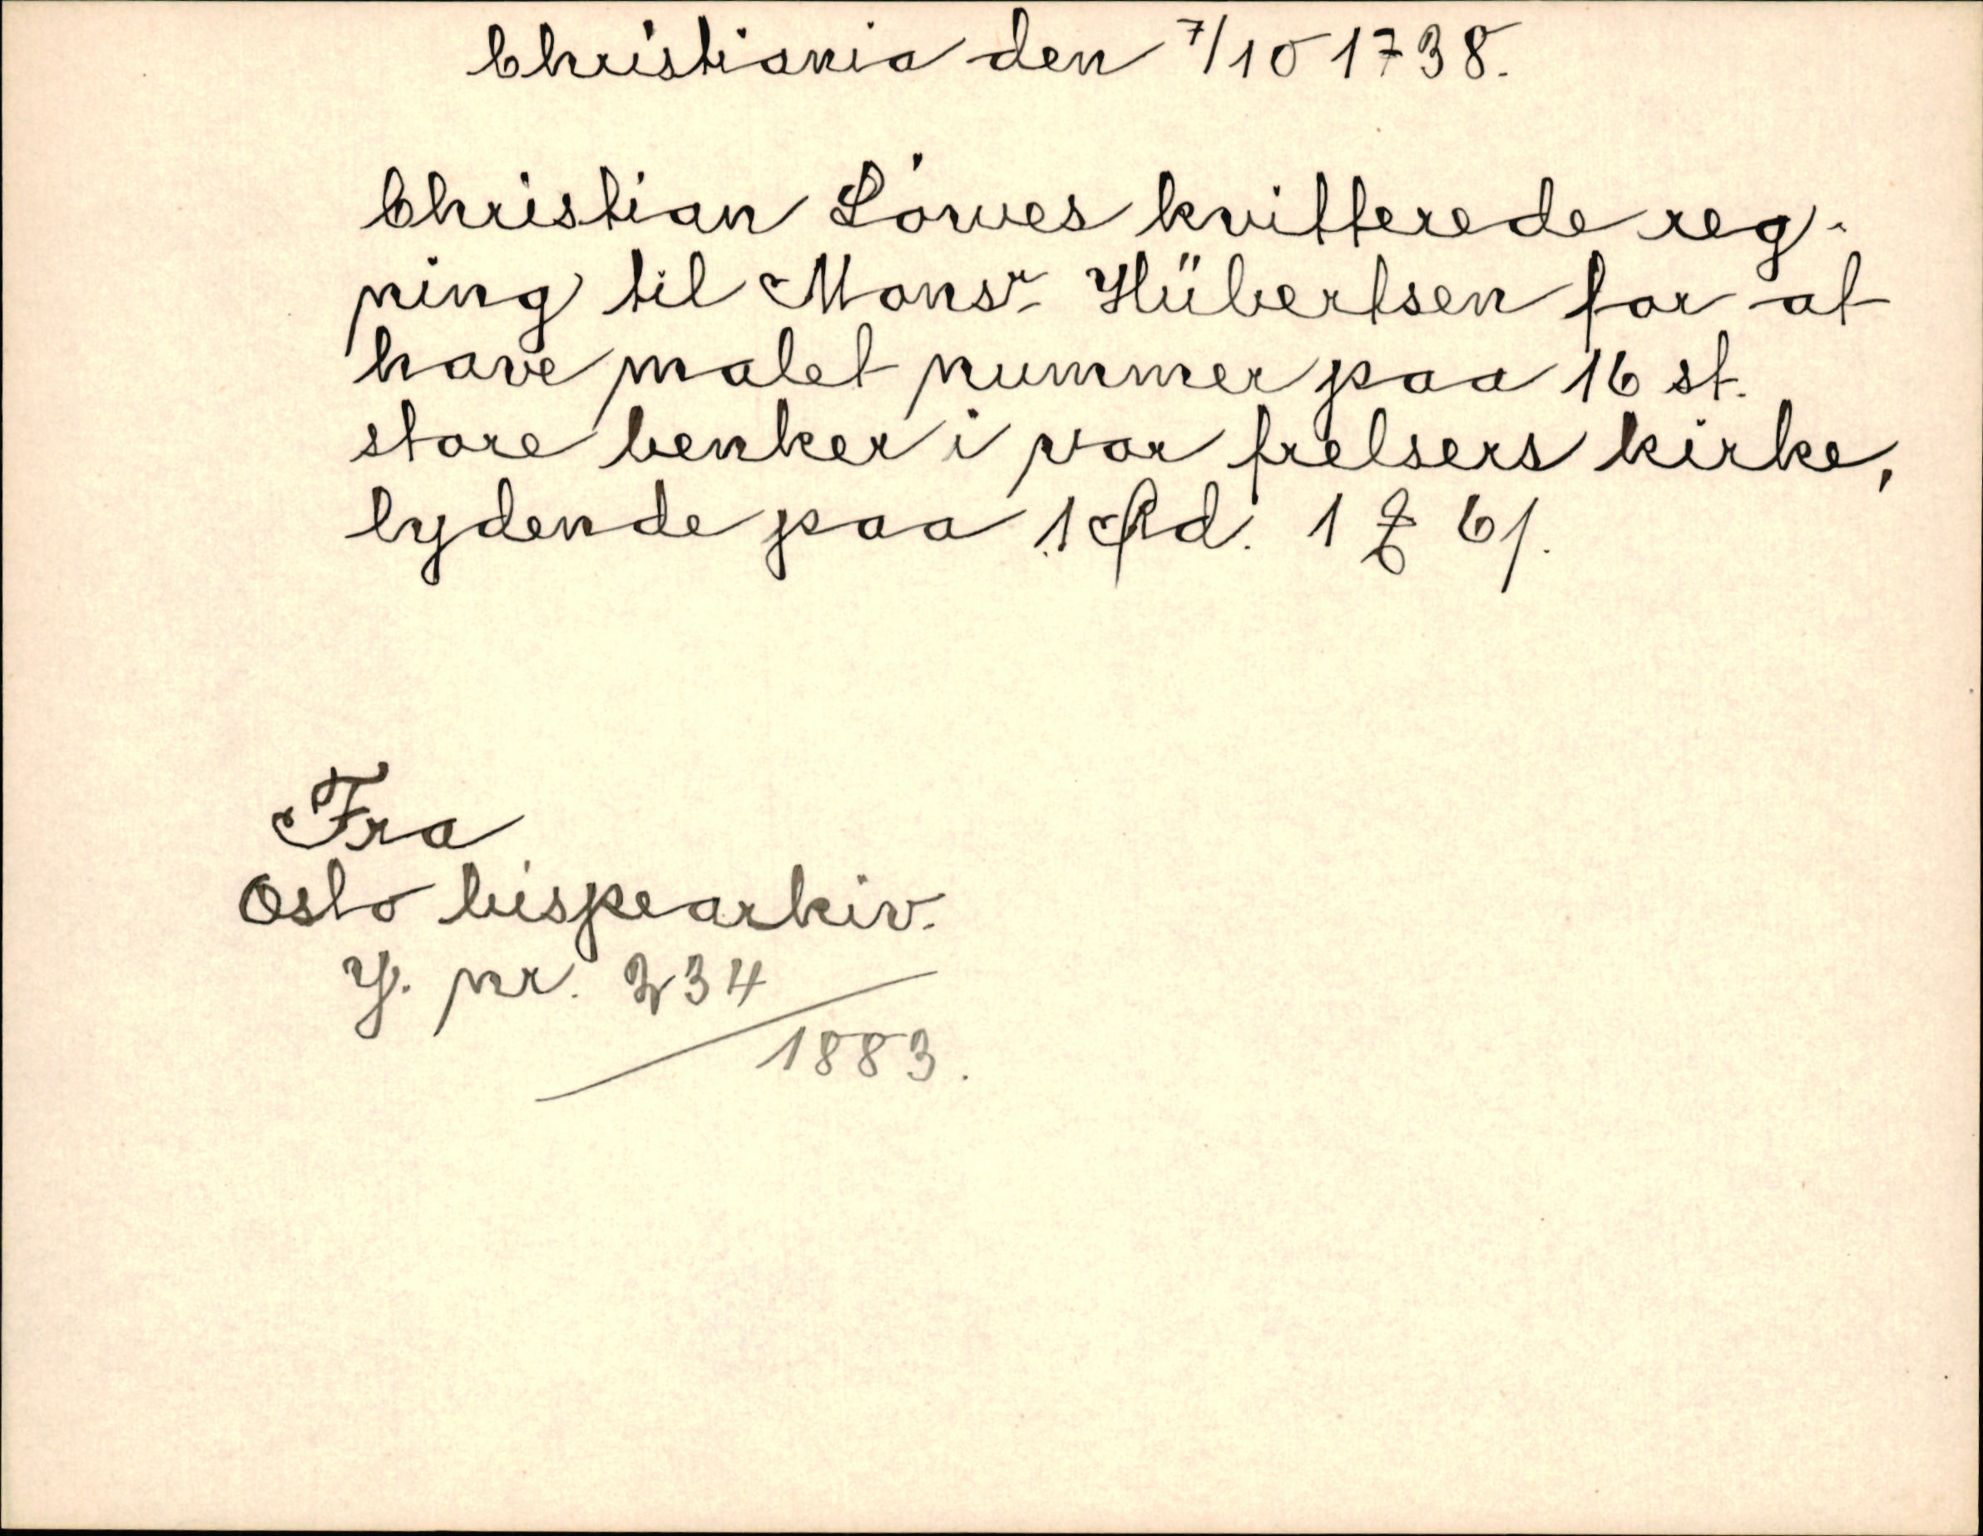 Christiania den 7/10 1738.
Christian Löwes kvitterede reg-
ning til Monsr Hübertsen for at
have malet nummer paa 16 st.
store benker i vor frelsers kirke,
lydende paa 1 Rd. 1 6
Fra
Oslo bispearkiv.
J. nr. 234
1883.